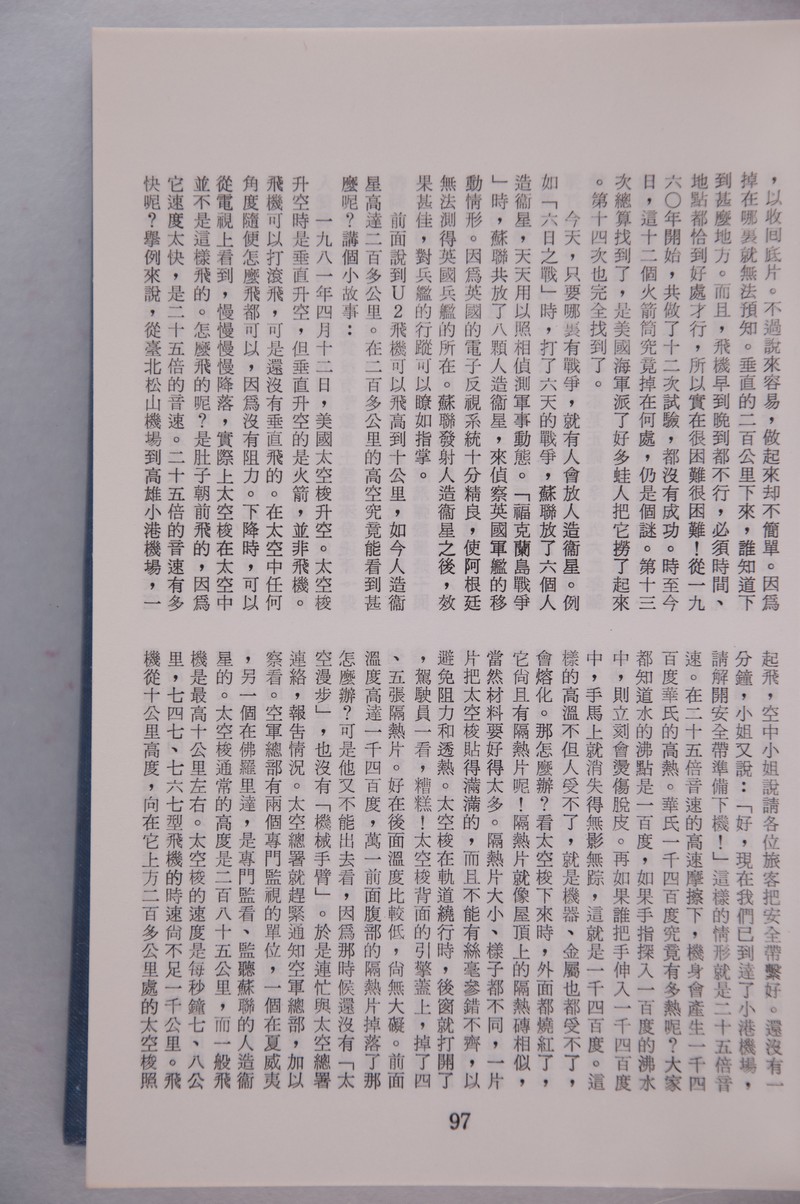 ，以收回底片。不過說來容易，做起來却不簡單。因爲
掉在哪裏就無法預知。垂直的二百公里下來，誰知道下
到甚麼地方。而且，飛機早到晚到都不行，必須時間、
地點都恰到好處才行，所以實在很困難很困難！從一九
六〇年開始，共做了十二次試驗，都沒有成功。時至今
日，這十二個火箭筒究竟掉在何處，仍是個謎。第十三
次總算找到了，是美國海軍派了好多蛙人把它撈了起來
。第十四次也完全找到了。
今天，只要哪裏有戰爭，就有人會放人造衞星。例
如「六日之戰」時，打了六天的戰爭，蘇聯放了六個人
造衞星，天天用以照相偵測軍事動態。「福克蘭島戰爭
」時，蘇聯共放了八顆人造衞星，來偵察英國軍艦的移
動情形。因爲英國的電子反視系統十分精良，使阿根廷
無法測得英國兵艦的所在。蘇聯發射人造衞星之後，效
果甚佳，對兵艦的行蹤可以瞭如指掌。
前面說到Ｕ２飛機可以飛高到十公里，如今人造衞
星高達二百多公里。在二百多公里的高空究竟能看到甚
麼呢？講個小故事：
一九八一年四月十二日，美國太空梭升空。太空梭
升空時是垂直升空，但垂直升空的是火箭，並非飛機。
飛機可以打滾飛，可是還沒有垂直飛的。在太空中任何
角度隨便怎麼飛都可以，因爲沒有阻力。下降時，可以
從電視上看到，慢慢慢慢降落，實際上太空梭在太空中
並不是這樣飛的。怎麼飛的呢？是肚子朝前飛的，因爲
它速度太快，是二十五倍的音速。二十五倍的音速有多
快呢？舉例來說，從臺北松山機場到高雄小港機場，一
起飛，空中小姐說請各位旅客把安全帶繫好。還沒有一
分鐘，小姐又說：「好，現在我們已到達了小港機場，
請解開安全帶準備下機！」這樣的情形就是二十五倍音
速。在二十五倍音速的高速摩擦下，機身會產生一千四
百度華氏的高熱。華氏一千四百度究竟有多熱呢？大家
都知道水的沸點是一百度，如果手指探入一百度的沸水
中，則立刻會燙傷脫皮。再如果誰把手伸入一千四百度
中，手馬上就消失得無影無踪，這就是一千四百度。這
樣的高溫不但人受不了，就是機器、金屬也都受不了，
會熔化。那怎麼辦？看太空梭下來時，外面都燒紅了，
它尙且有隔熱片呢！隔熱片就像屋頂上的隔熱磚相似，
當然材料要好得太多。隔熱片大小、樣子都不同，一片
片把太空梭貼得滿滿的，而且不能有絲毫參錯不齊，以
避免阻力和透熱。太空梭在軌道繞行時，後窗就打開了
，駕駛員一看，糟糕！太空梭背面的引擎蓋上，掉了四
、五張隔熱片。好在後面溫度比較低，尙無大礙。前面
溫度高達一千四百度，萬一前面腹部的隔熱片掉落了那
怎麼辦？可是他又不能出去看，因爲那時候還沒有「太
空漫步」，也沒有「機械手臂」。於是連忙與太空總署
連絡，報告情況。太空總署就趕緊通知空軍總部，加以
察看。空軍總部有兩個專門監視的單位，一個在夏威夷
，另一個在佛羅里達，是專門監看、監聽蘇聯的人造衞
星的。太空梭通常的高度是二百八十五公里，而一般飛
機是最高十公里左右。太空梭的速度是每秒鐘七、八公
里，七四七、七六七型飛機的時速尙不足一千公里。飛
機從十公里高度，向在它上方二百多公里處的太空梭照
97